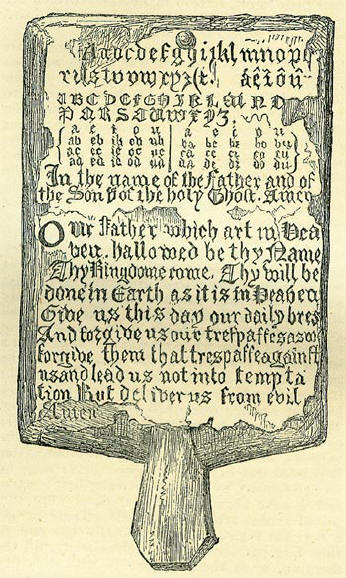 Aabcdefghijklmnopq
rſstuvwxyz
ABCDEFGHIKLMNO
PQRSTUVWXYZ.
a e i o u a e i o u
ab eb ib ob ub ba be bi bo bu
ac ec ic oc uc ca ce ci co cu
ad ed id od ud da de di do du
In the name of the Father and of
the Son & of the holy Ghost. Amen
Our Father which art in Hea
ven. hallowed be thy Name
Thy Kingdome come. Thy will be
done in Earth as it is in Heaven
Give us this day our daily bred
And forgive us our treſpaſſes as we
forgive them that treſpaſſe againſt
us and lead us not into tempta
tion But deliver us from evil
Amen